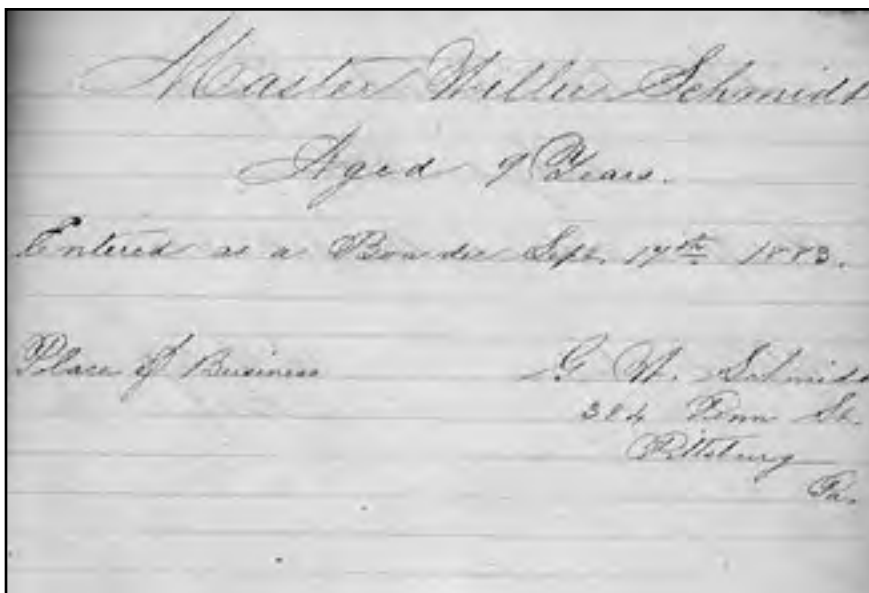 Master Willie Schmidt
Aged 9 Years.
Entered as a Boarder Sept. 17th 1883.
Place of Business
G. W. Schmidt
304 Penn St.
Pittsburg
Pa.